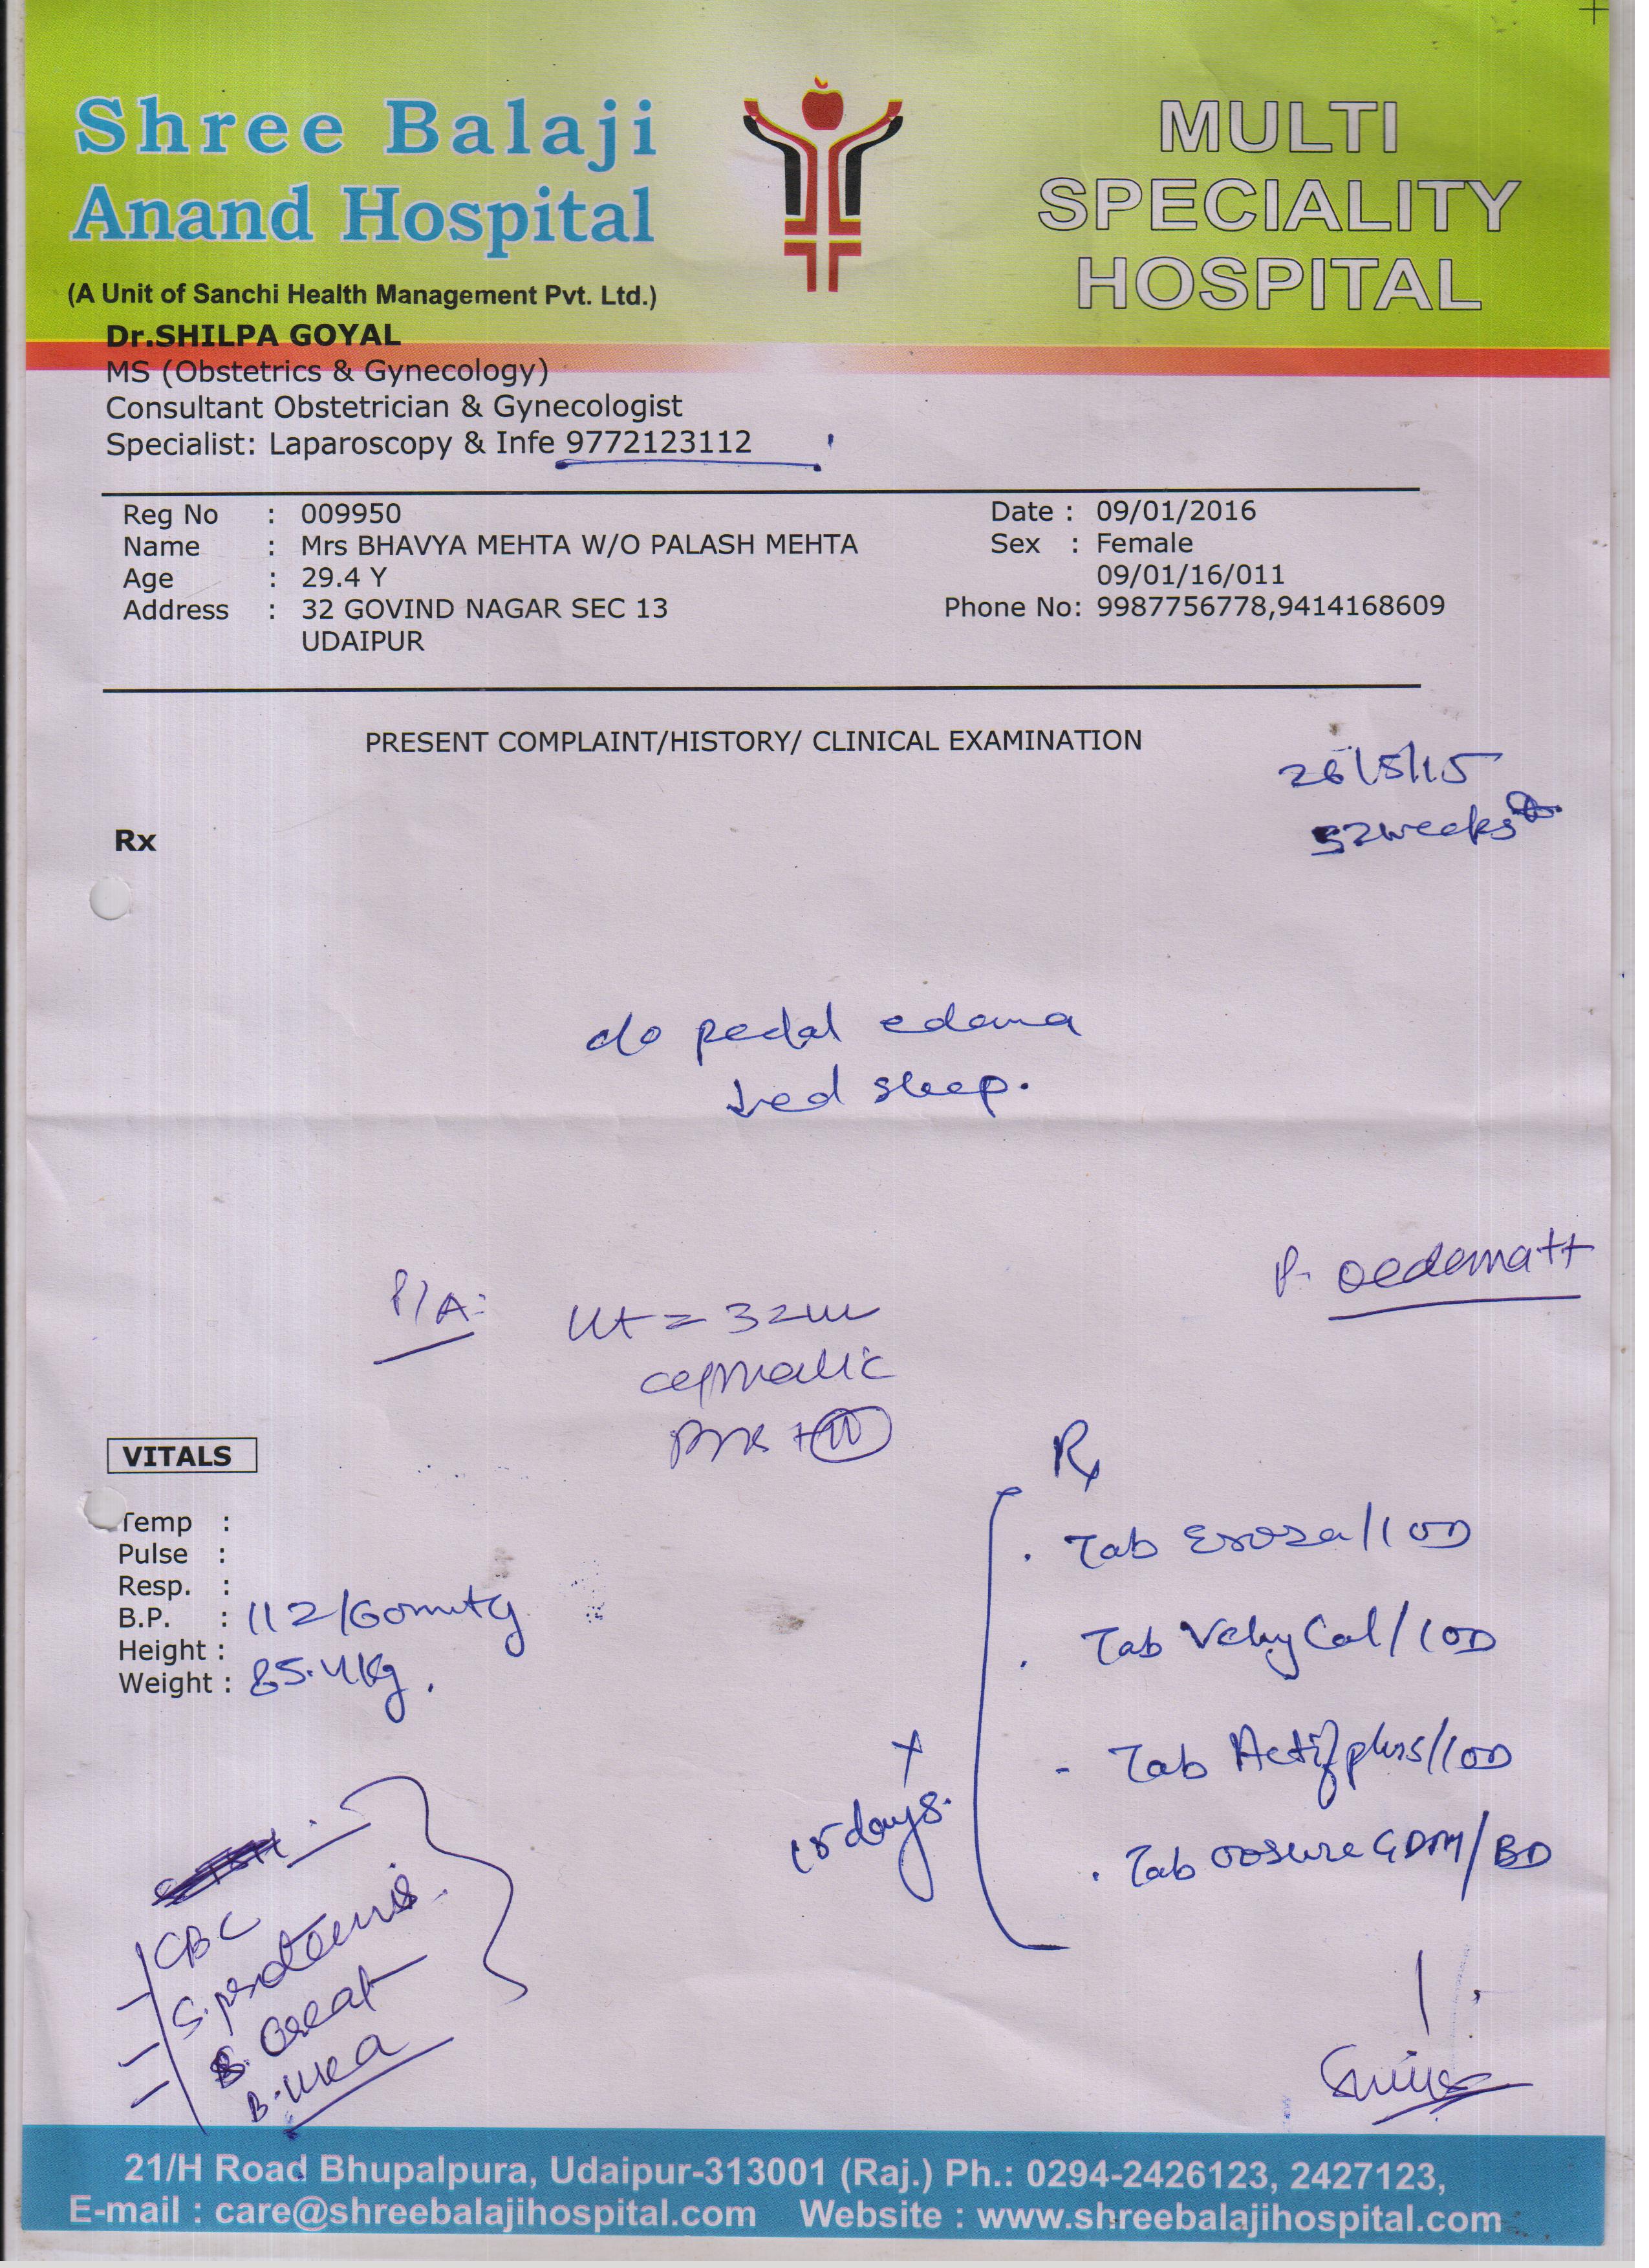 Shree Balaji
Anand Hospital
(A Unit of Sanchi Health Management Pvt. Ltd.)
MULTI
SPECIALITY
HOSPITAL
Dr.SHILPA GOYAL
MS (Obstetrics & Gynecology)
Consultant Obstetrician & Gynecologist
Specialist: Laparoscopy & Infe 9772123112
Reg No : 009950 Date : 09/01/2016
Name : Mrs BHAVYA MEHTA W/O PALASH MEHTA Sex : Female
Age : 29.4 Y 09/01/16/011
Address : 32 GOVIND NAGAR SEC 13 Phone No: 9987756778,9414168609
UDAIPUR
PRESENT COMPLAINT/HISTORY/ CLINICAL EXAMINATION
26/5/15
32weeks
Rx
c/o pedal edema
↓sed sleep.
P. oedema++
P/A: Ut = 32w
cephalic
VITALS
Rx
Temp :
Pulse :
Resp. :
B.P. : 112/60mmHg
Height :
Weight : 85.4Kg.
. Tab /1 OD
. Tab Cal/1 OD
- Tab plus/1 OD
. Tab GDM/BD
x
15 days.
CBC
S. proteins
S. Creat
B. Urea
21/H Road Bhupalpura, Udaipur-313001 (Raj.) Ph.: 0294-2426123, 2427123,
E-mail : care@shreebalajihospital.com Website : www.shreebalajihospital.com